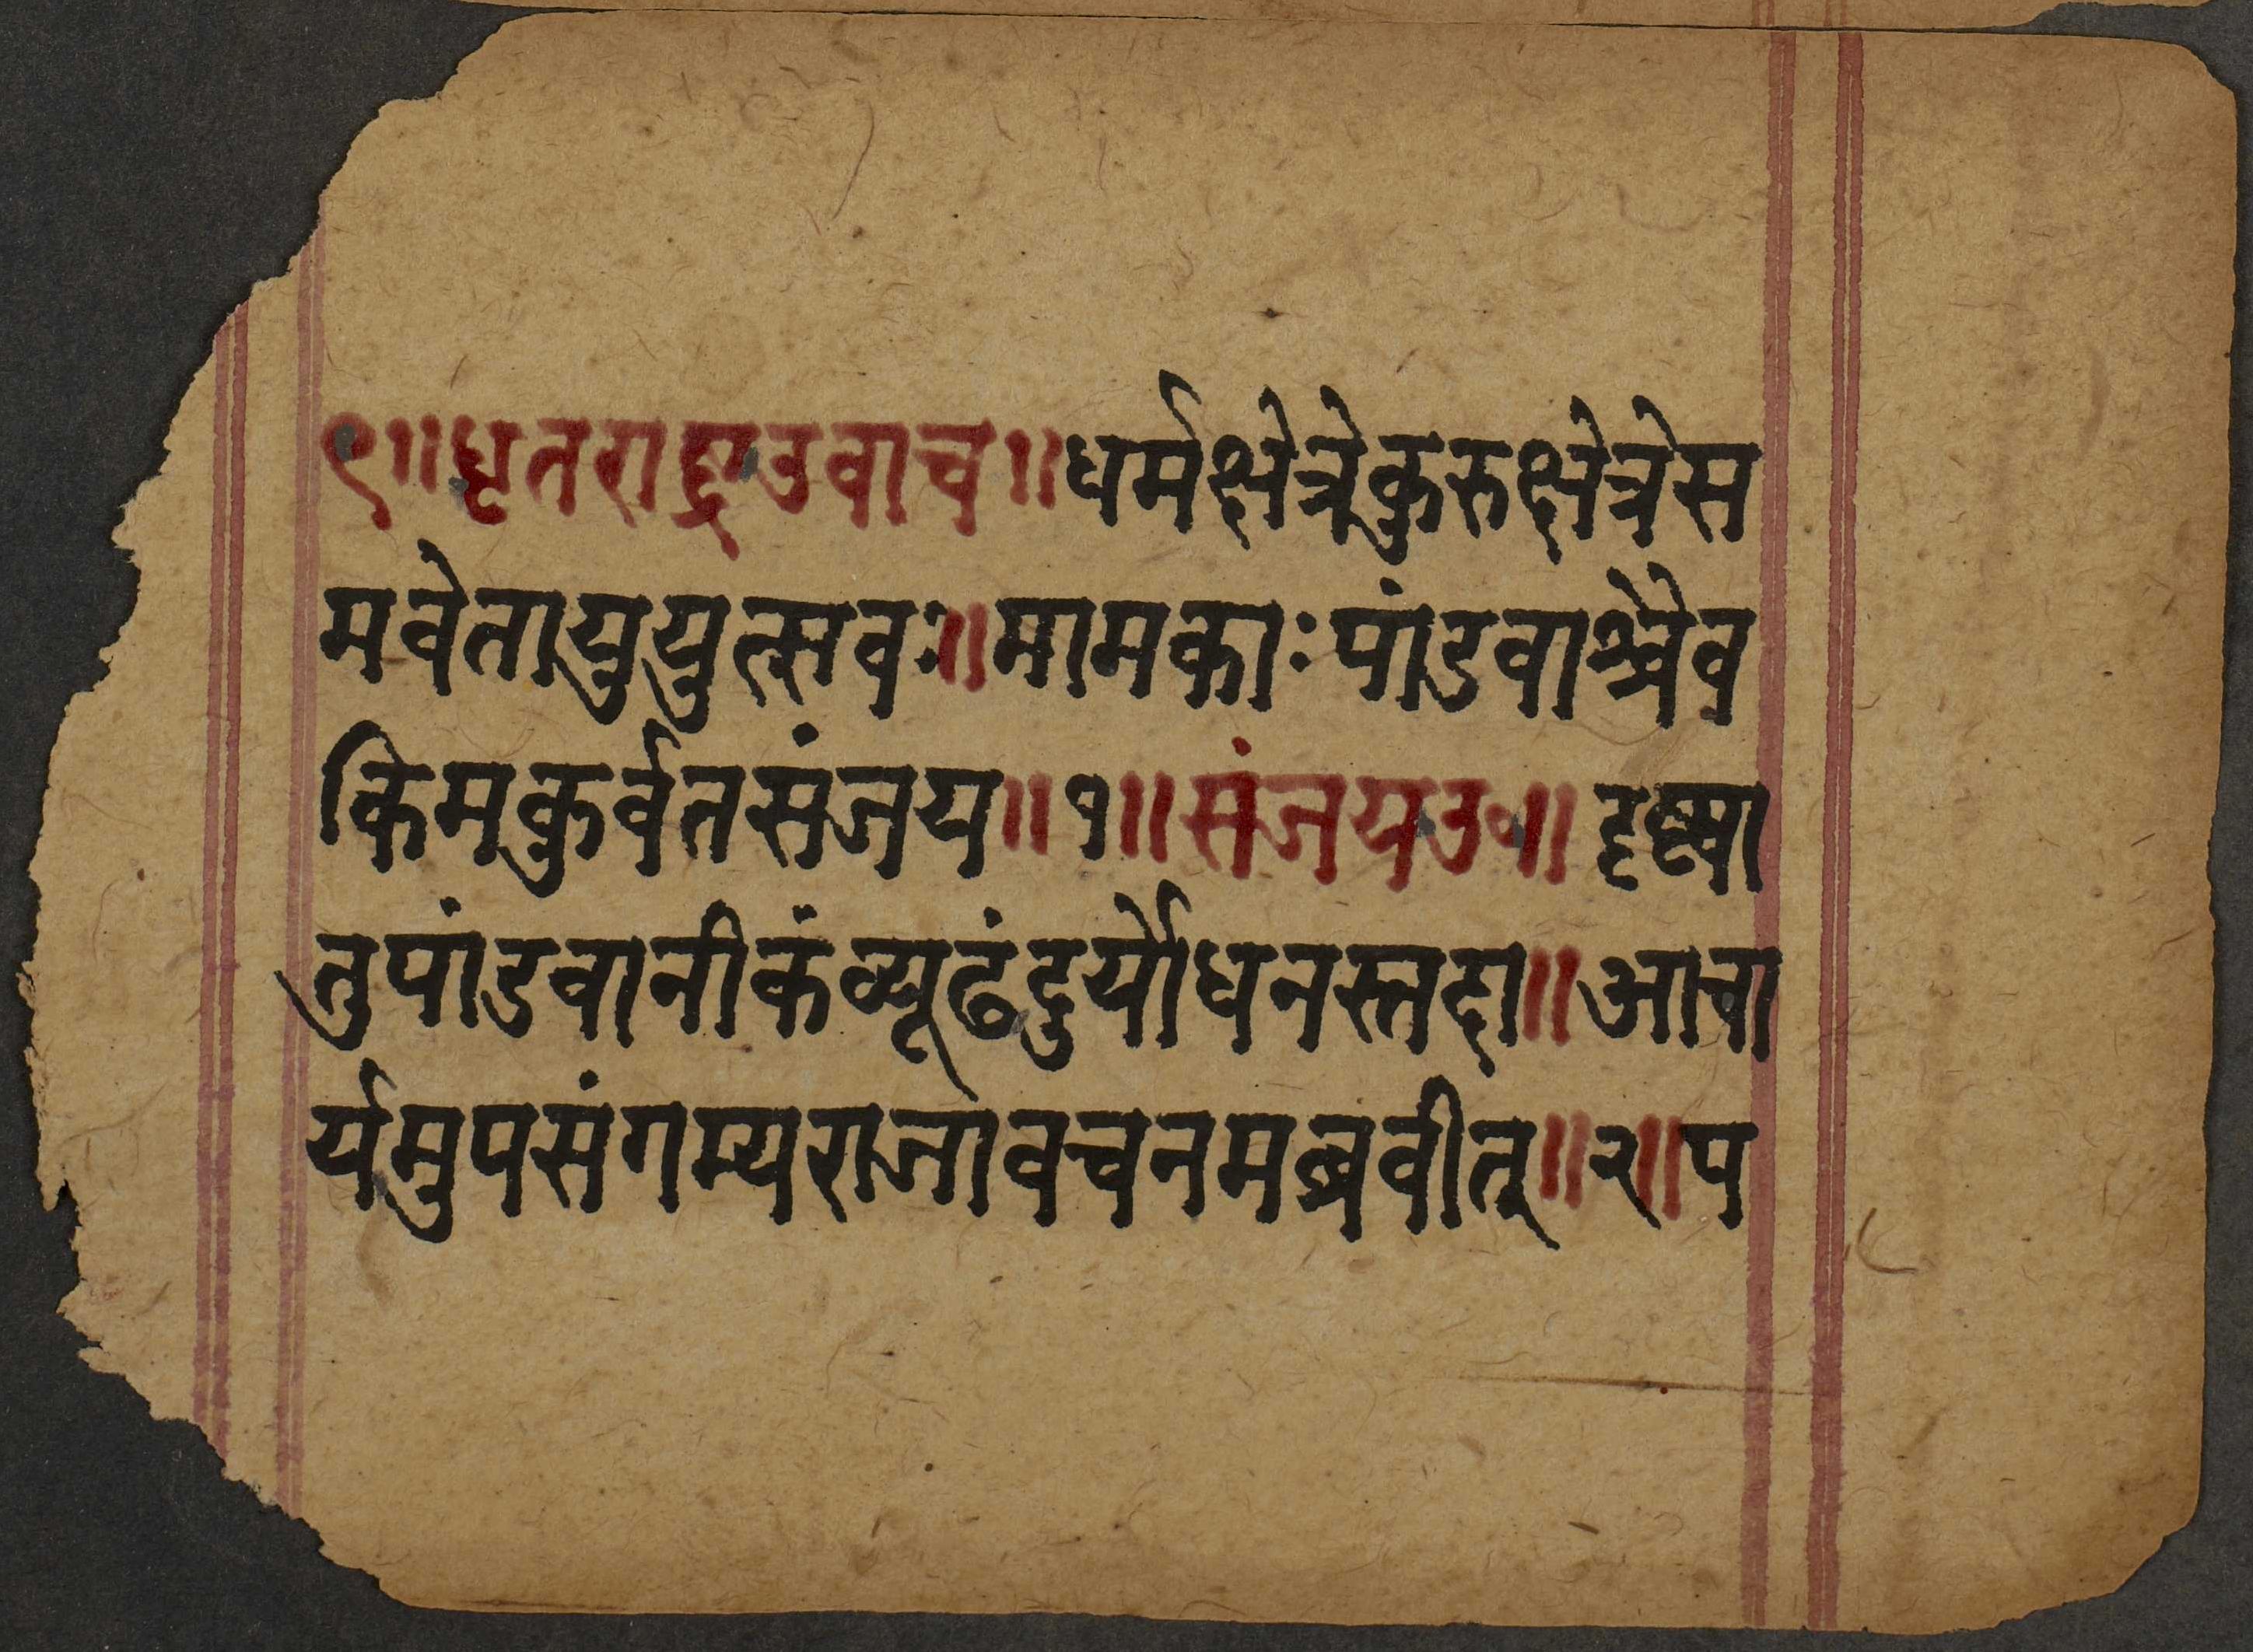 ९॥धृतराष्ट्रउवाच॥धर्मक्षेत्रेकुरुक्षेत्रेस
मवेतायुयुत्सवः॥मामकाःपांडवाश्चैव
किमकुर्वतसंजय॥१॥संजयउ०॥दृष्ट्वा
तुपांडवानीकंव्यूढंदुर्योधनस्तदा॥आचा
र्यमुपसंगम्यराजावचनमब्रवीत्॥२॥प